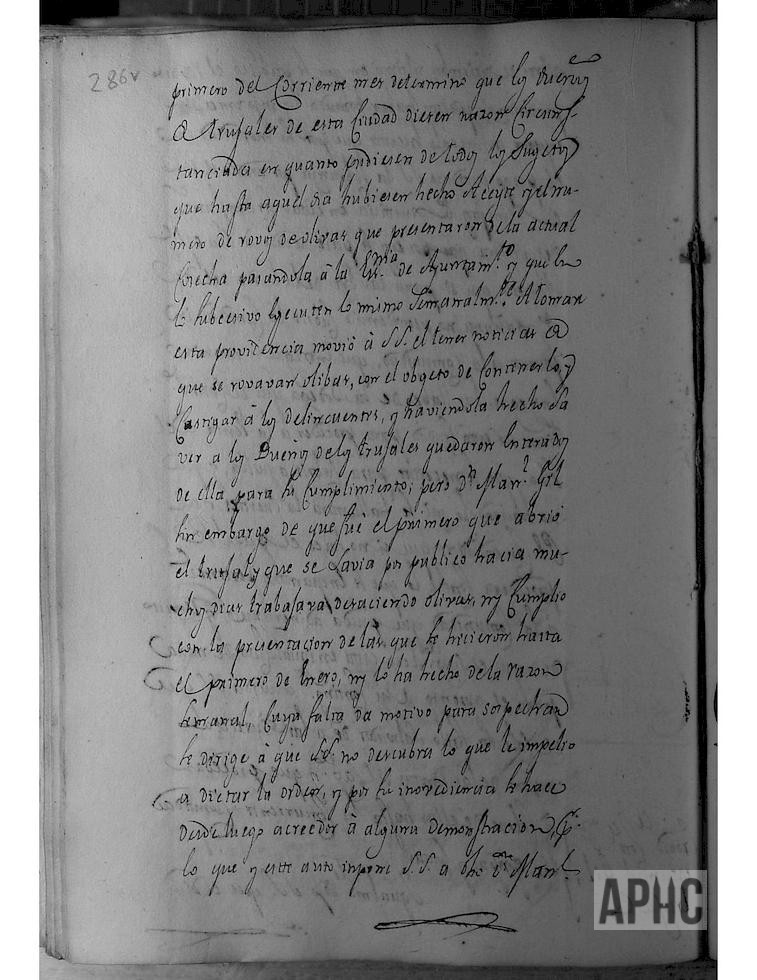 286v
primero del Corriente mes determino que los Dueños
de trujales de esta Ciudad diesen razon Circuns-
tanciada en quanto pudiesen de todos los Sugetos
que hasta aquel dia hubiesen hecho Aceyte y el nu-
mero de rovos de olivas que presentaron de la actual
Cosecha pasandola à la de Ayuntam.to y que en
lo subcesivo egecuten lo mismo Semanalm.te A tomar
esta providencia movió à S.S. el tener noticias de
que se rovavan olibas, con el obgeto de Contenerlo, y
Castigar à los delincuentes, y haviendola hecho Sa
ver a los Dueños de los trujales quedaron Enterados
de ella para su Cumplimiento; pero Dn Man.l Gil
sin embargo de que fue el primero que abrió
el trujal y que se Savia por publico hacia mu-
chos dias trabajava desaciendo olivas, ny Cumplio
con la presentacion de las que se hicieron hasta
el primero de Enero, ny lo ha hecho de la razon
semanal, Cuya falta da motivo para sospechar
se dirige à que S.S. no descubra lo que le impelio
a dictar la orden, y por su inovediencia se hace
desde luego acreedor à alguna demonstracion, Por
lo que y este auto impone S.S. a dho Dn Man.l
APHC